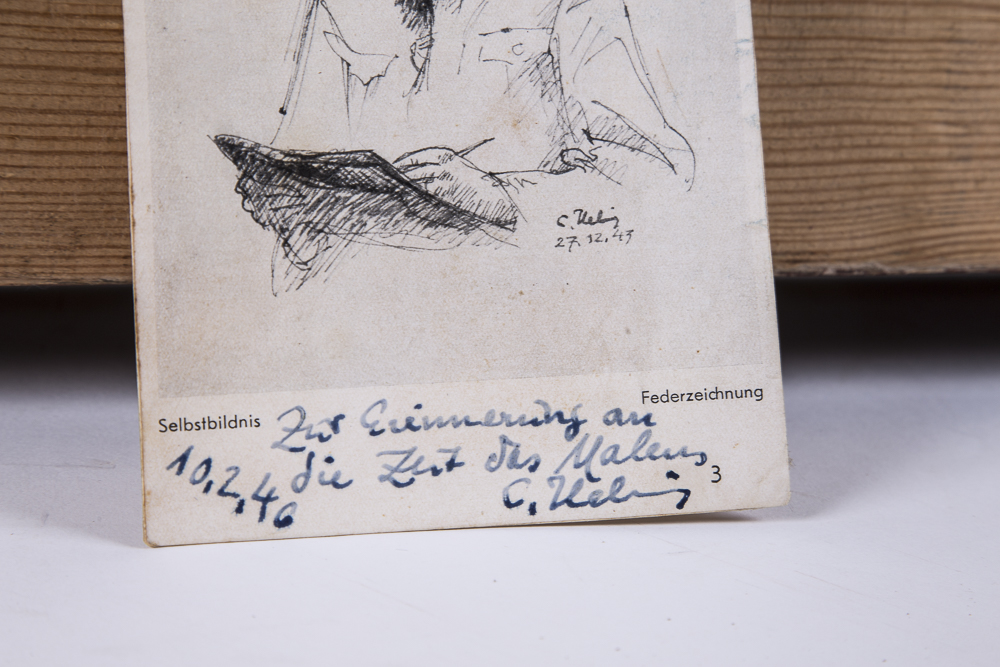 C. Helbig
27.12.43
Selbstbildnis
Federzeichnung
Zur Erinnerung an
die Zeit des Malens
10.2.46
C. Helbig
3